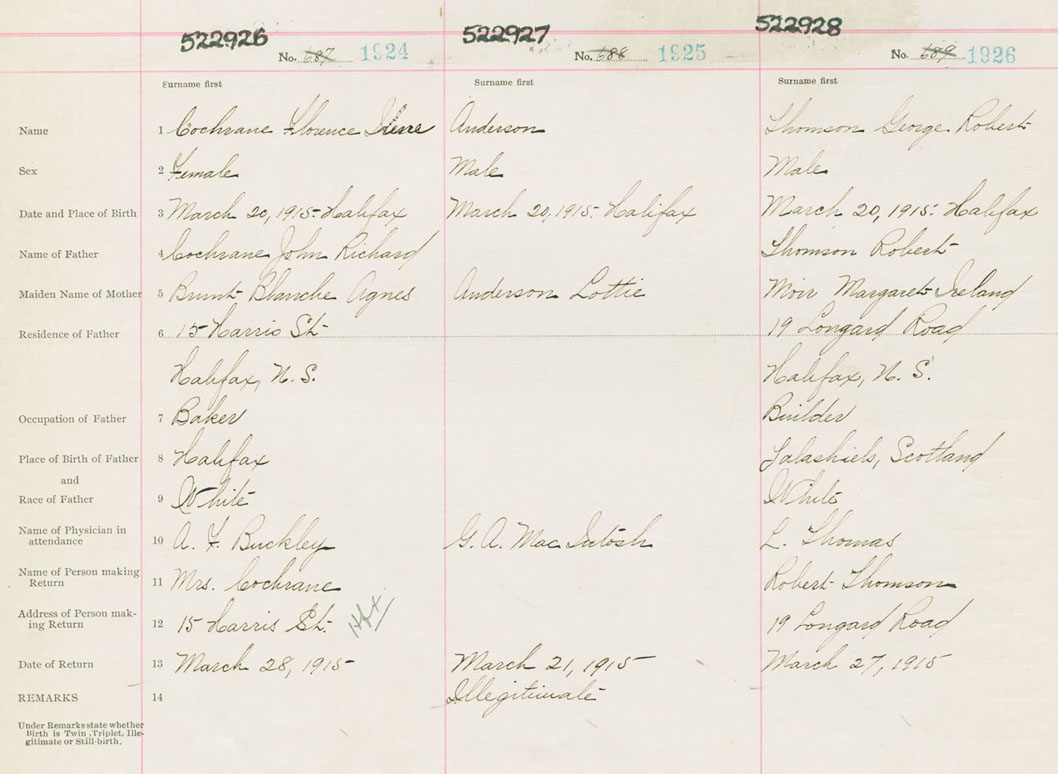 522926 522927 522928
No. 687 1924 No. 688 1925 No. 689 1926
Surname first Surname first Surname first
Name 1 Cochrane Florence Irene Anderson Thomson George Robert
Sex 2 Female Male Male
Date and Place of Birth 3 March 20, 1915 Halifax March 20, 1915. Halifax March 20, 1915. Halifax
Name of Father 4 Cochrane John Richard Thomson Robert
Maiden Name of Mother 5 Brunt Blanche Agnes Anderson Lottie Moir Margaret Ireland
Residence of Father 6 15 Harris St. 19 Longard Road
Halifax, N. S. Halifax, N. S.
Occupation of Father 7 Baker Builder
Place of Birth of Father 8 Halifax Galashiels, Scotland
and
Race of Father 9 White White
Name of Physician in
attendance 10 A. F. Buckley G. A. MacIntosh L. Thomas
Name of Person making
Return 11 Mrs. Cochrane Robert Thomson
Address of Person mak-
ing Return 12 15 Harris St. Hfx 19 Longard Road
Date of Return 13 March 28, 1915 March 21, 1915 March 27, 1915
REMARKS 14 Illegitimate
Under Remarks state whether
Birth is Twin, Triplet, Ille-
gitimate or Still-birth.